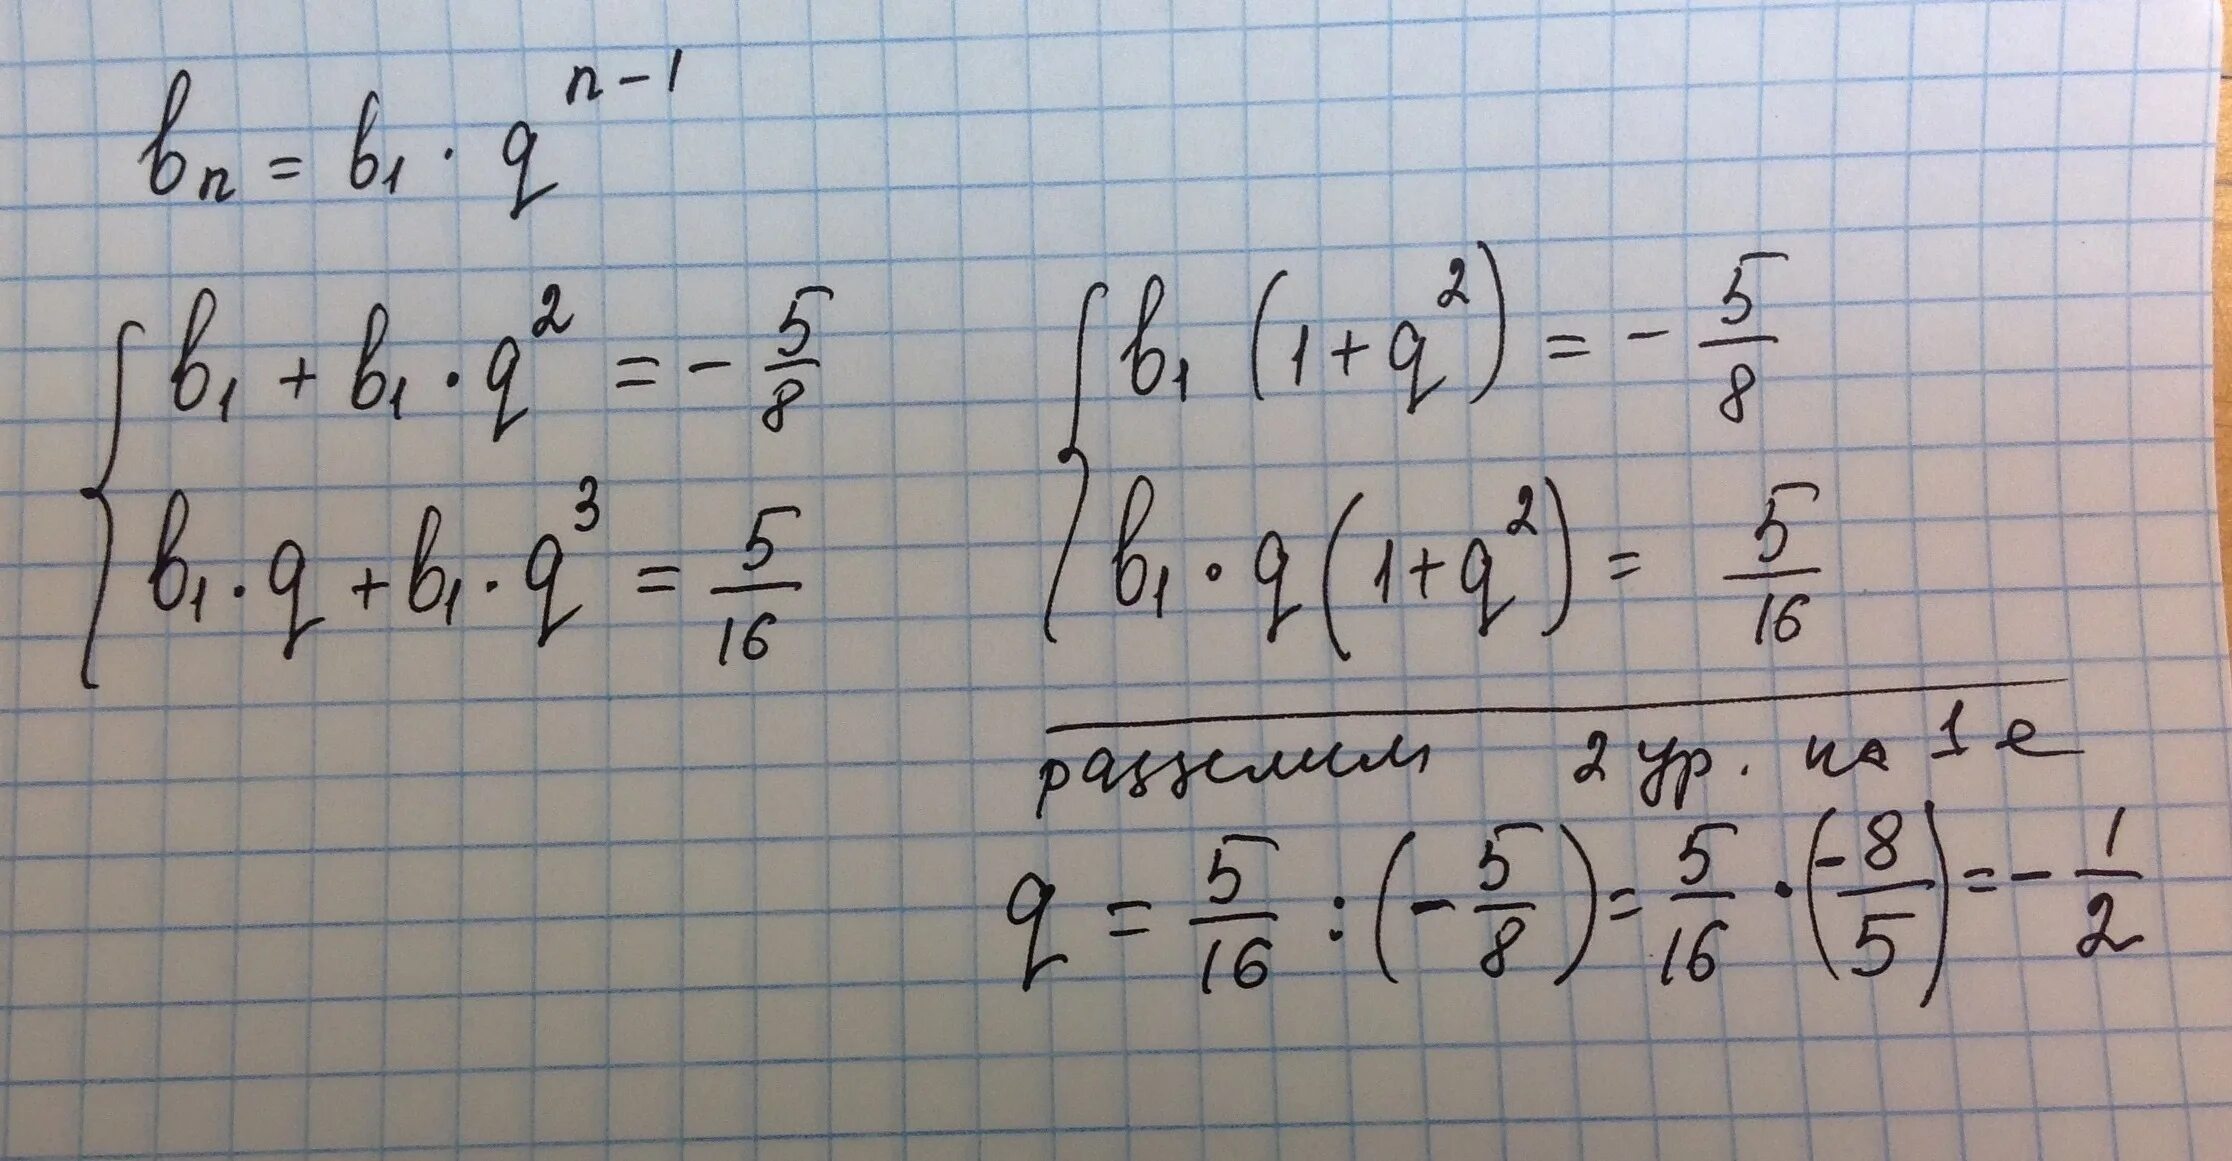 bₙ = b₁ · qⁿ⁻¹
b₁ + b₁ · q² = - 5/8
b₁ · q + b₁ · q³ = 5/16
b₁ (1 + q²) = - 5/8
b₁ · q (1 + q²) = 5/16
разделим 2 ур. на 1 е
q = 5/16 : (- 5/8) = 5/16 · (-8/5) = - 1/2